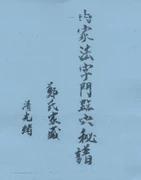 家法字門點穴秘譜
鄭氏家藏
清光緒